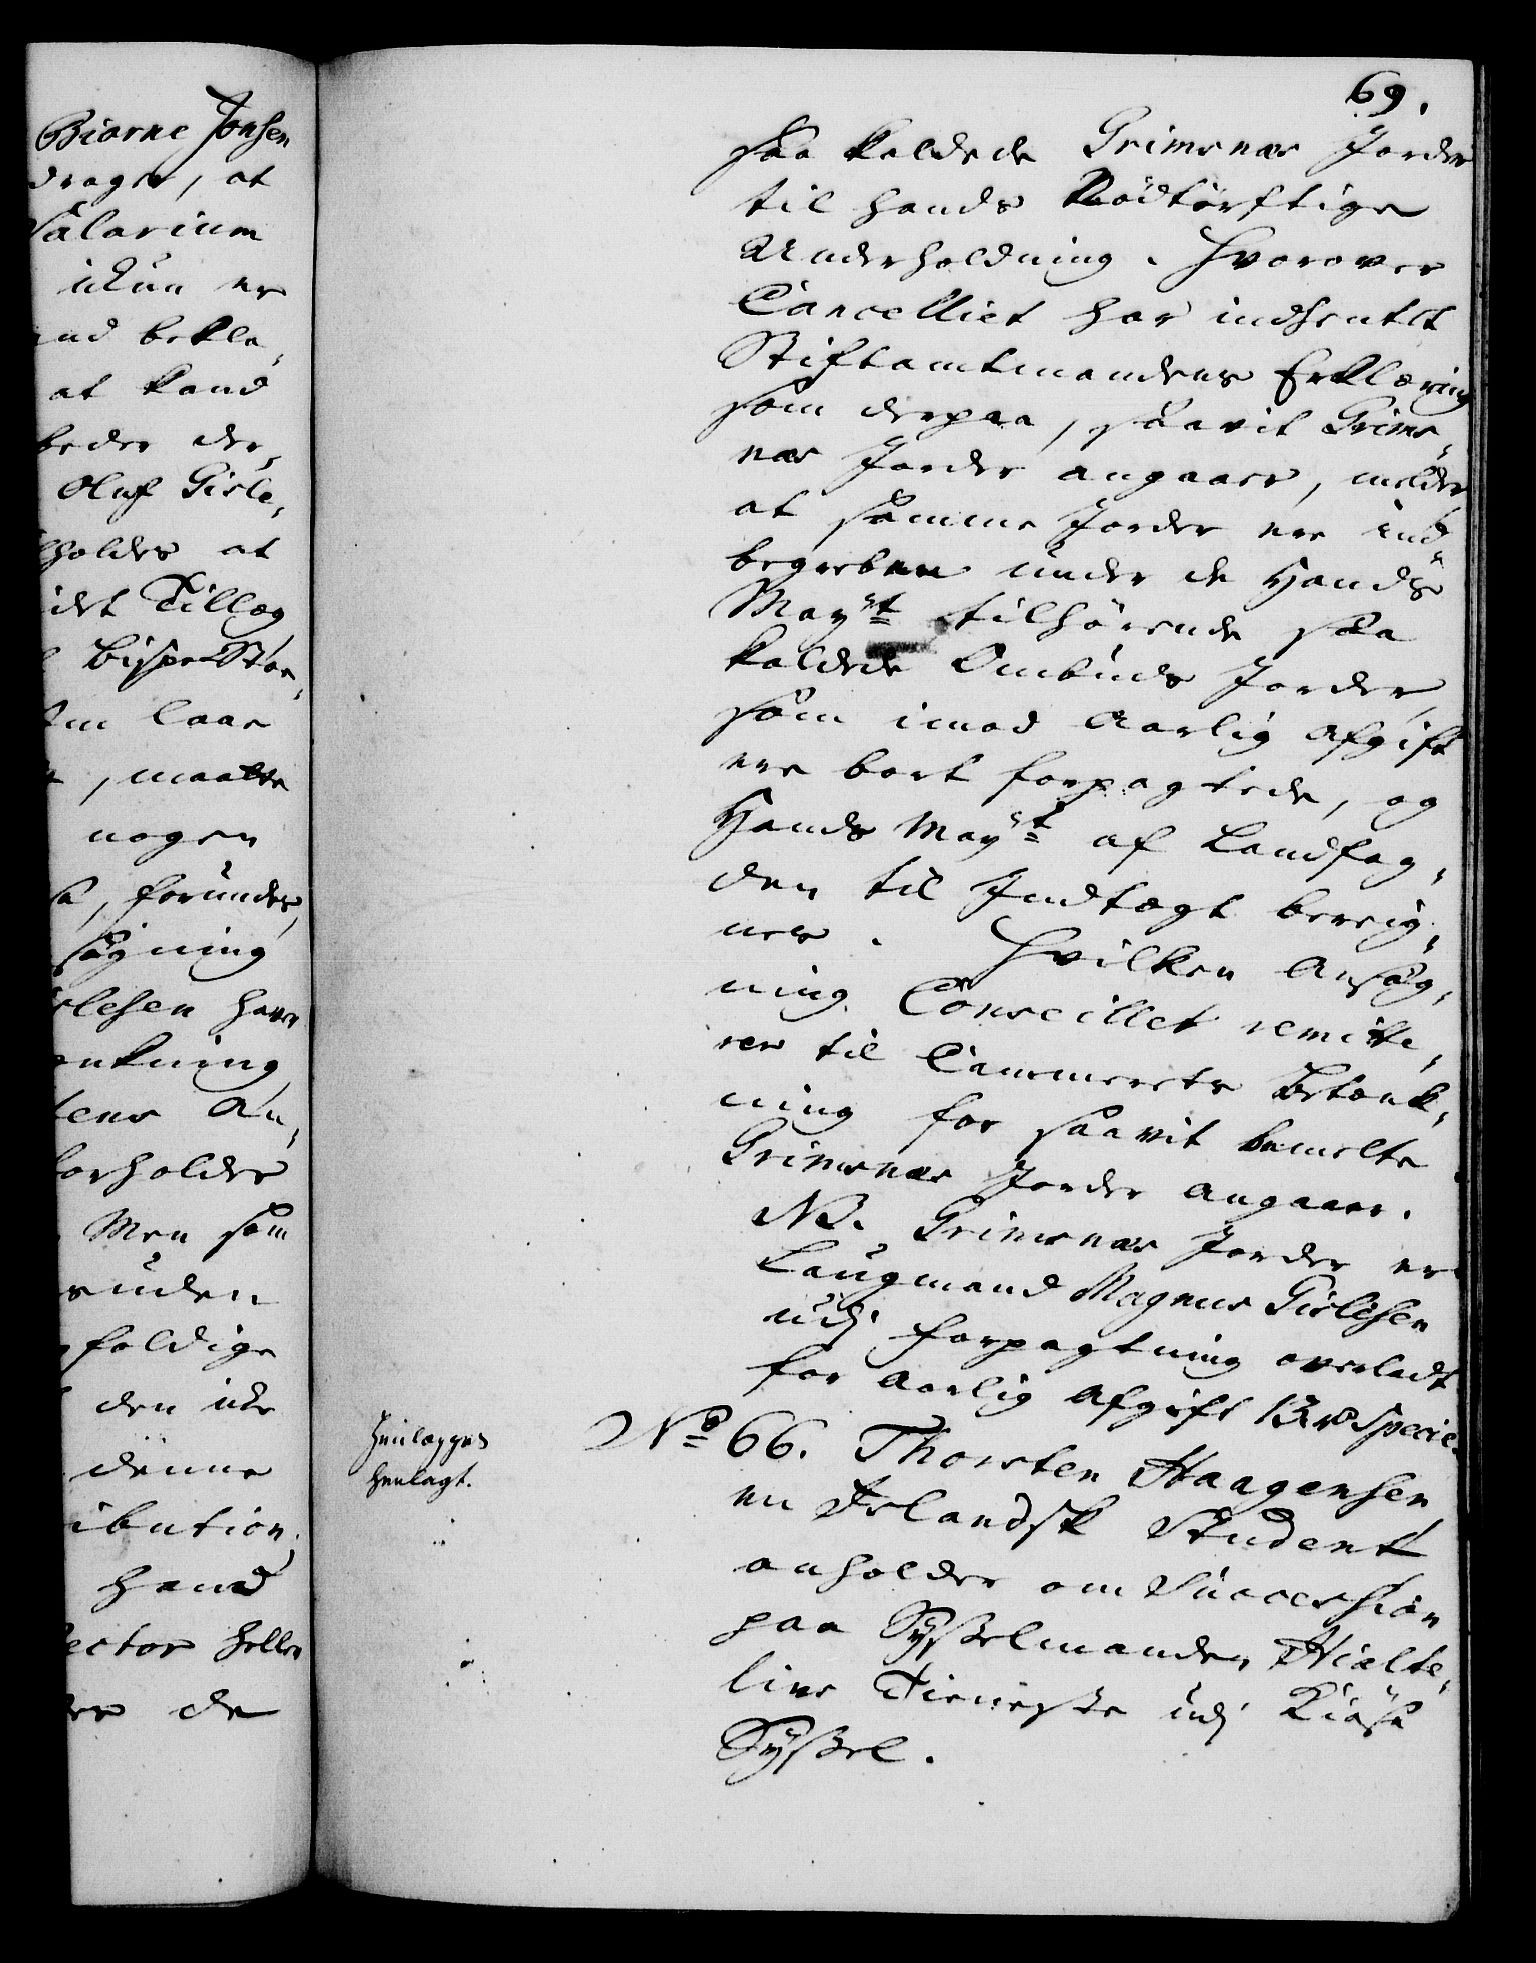 Biarne Jonsen
drager, at
Salarium
ikun er
and bekla¸
at kand
beder der¸
Oluf Gisle¸
holdes at
idet Tillæg
bispe Stoe¸
laae
, maatte
nogen
, forunder
søgning
islesen haver
enkning
tens An¸
forholder
Men som
suden
foldige
den ike
denne
ibution,
hand
ector
de
69.
saa kaldede Grimsnæs Jorder
til hands Nödtörftige
Underholdning. Hvorover
Cancelliet har indhentet
Stiftamtmandens Erklæring
som derpaa, saavit Grims¸
næs Jorder angaaer, melder
at samme Jorder ere ind¸
begreben under de Hands
Mayst tilhörende saa
kaldede Ombuds Jorder,
som imod aarlig Afgift
ere bort forpagtede, og
Hands Mayst af Landfog¸
den til Indtægt bereig¸
nes. Hvilken Ansög¸
ning Conseillet remitte¸
rer til Cammerets Betænk¸
ning for saavit bemelte
Grimsnæs Jorder angaaer.
NB. Grimsnæs Jorder er
Laugmand Magnus Gislesen
udj forpagtning overladt
for aarlig Afgift Specie
Henlægges
henlagt.
No 66. Thorsten Haagensen
en Islandsk Student
anholder om Succession
paa Sysselmanden Hialte¸
lins Tieneste udj Kiose
Syssel.